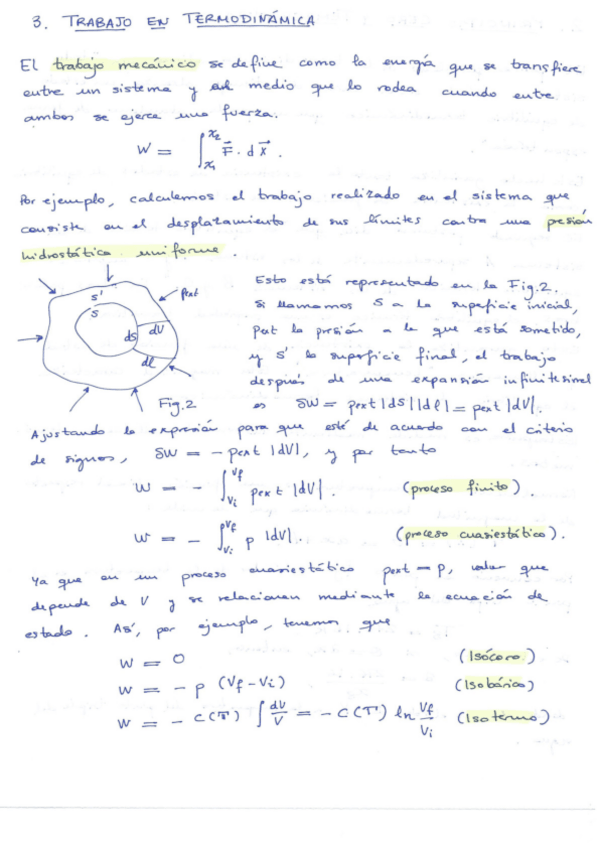 3. TRABAJO EN TERMODINÁMICA
El trabajo mecánico se define como la energía que se transfiere
entre un sistema y el medio que lo rodea cuando entre
ambos se ejerce una fuerza.
W = ∫_{x1}^{x2} F⃗ · d x⃗ .
Por ejemplo, calculemos el trabajo realizado en el sistema que
consiste en el desplazamiento de sus límites contra una presión
hidrostática uniforme.
S'
S
dS
dV
dl
Pext
Fig.2
Esto está representado en la Fig.2.
Si llamamos S a la superficie inicial,
Pext la presión a la que está sometido,
y S' la superficie final, el trabajo
después de una expansión infinitesimal
es δW = pext |dS||dl| = pext |dV|.
Ajustando la expresión para que esté de acuerdo con el criterio
de signos, δW = - pext |dV|, y por tanto
W = - ∫_{Vi}^{Vf} pext |dV|. (proceso finito).
W = - ∫_{Vi}^{Vf} p |dV|. (proceso cuasiestático).
Ya que en un proceso cuasiestático pext = p, valor que
depende de V y se relacionan mediante la ecuación de
estado. Así, por ejemplo, tenemos que
W = 0 (Isócoro)
W = - p (Vf - Vi) (Isobárico)
W = - C(T) ∫ dV/V = - C(T) ln Vf/Vi (Isotermo)